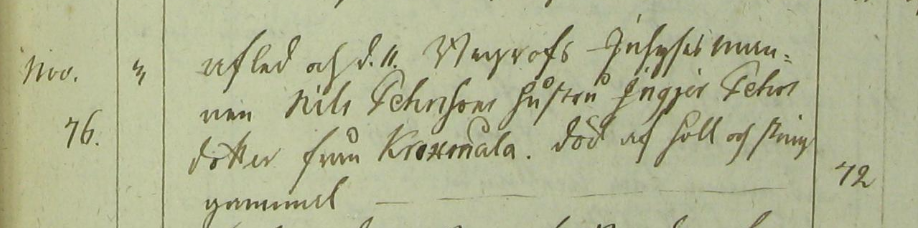 Nov. 3 afled och d. 11. begrofs Inhyses man=
nen Nils Pehrssons hustru Ingjer Pehrs
76. dotter från Kroxmåla. död af håll och sting
gammal — 72